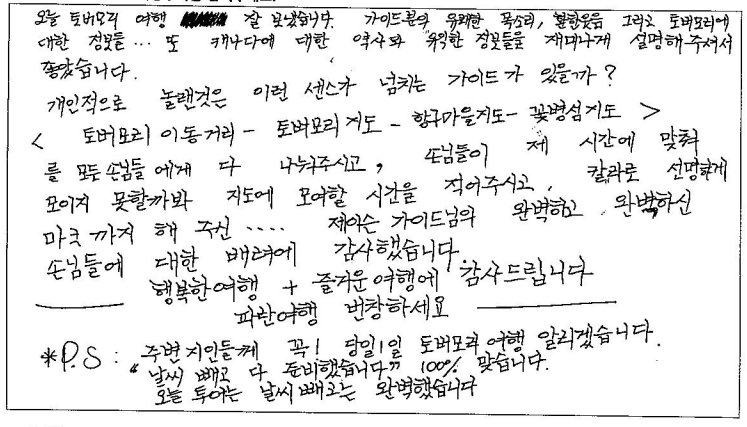 오늘 토버모리 여행 잘 보냈습니다. 가이드분의 유쾌한 목소리, 그리고 토버모리에
대한 정보들... 또 캐나다에 대한 역사와 유익한 정보들을 재미나게 설명해 주셔서
좋았습니다.
개인적으로 놀랜것은 이런 센스가 넘치는 가이드가 있을까?
< 토버모리 이동거리 - 토버모리 지도 - 항구마을지도 - 꽃병섬지도 >
를 모든 손님들에게 다 나눠주시고, 손님들이 제 시간에 맞춰
모이지 못할까봐 지도에 모여할 시간을 적어주시고, 칼라로 선명하게
마크까지 해 주신 .... 제이슨 가이드님의 완벽하고 완벽하신
손님들에 대한 배려에 감사했습니다.
행복한여행 + 즐거운여행에 감사드립니다
파란여행 번창하세요
*P.S : 주변지인들께 꼭! 당일1일 토버모리 여행 알리겠습니다.
"날씨 빼고 다 준비했습니다" 100% 맞습니다.
오늘 투어는 날씨 빼고는 완벽했습니다